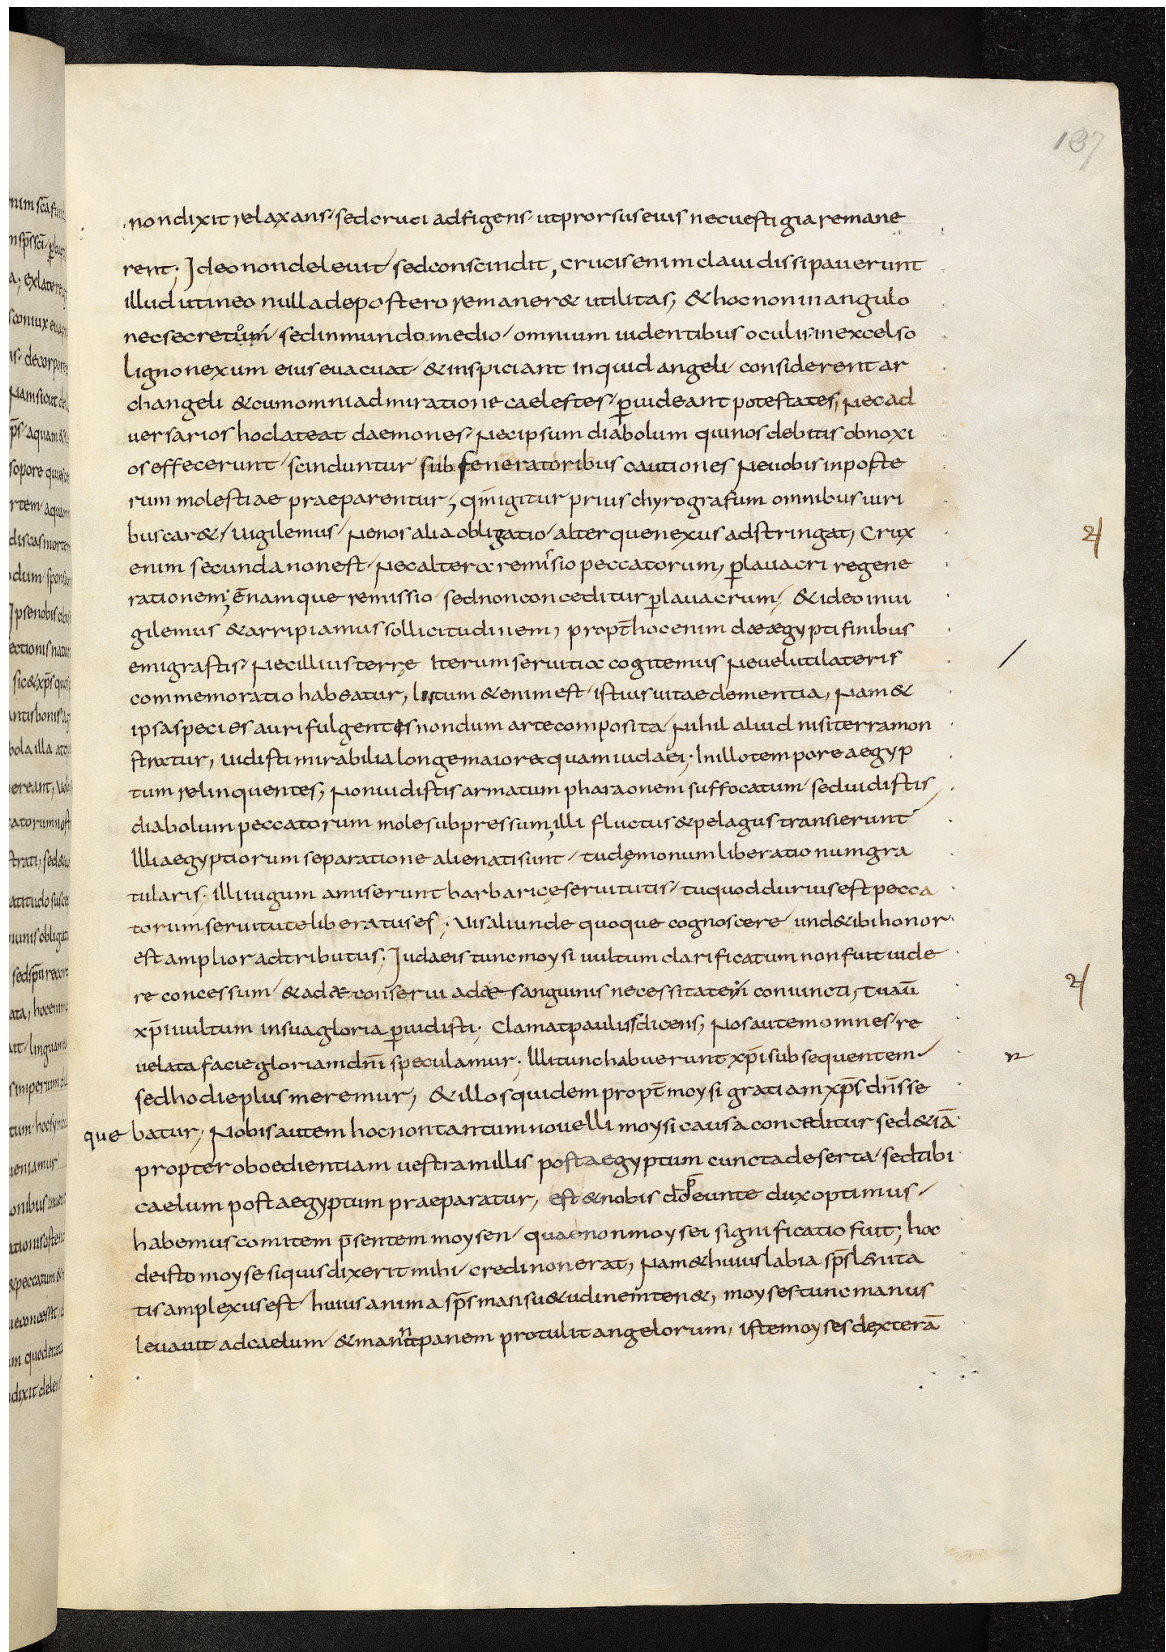 187
non dixit relaxans, sed cruci adfigens, ut prorsus eius nec uestigia remane
rent; Ideo non deleuit, sed conscindit, crucis enim claui dissipauerunt
illud ut in eo nulla de postero remaner& utilitas, & hoc non in angulo
nec secretum, sed in mundo medio, omnium uidentibus oculis, in excelso
ligno nexum eius euacuat, & inspiciant inquid angeli, considerent ar
changeli & cum omni admiratione caelestes, puideant potestates, Nec ad
uersarios hoc lateat daemones, Nec ipsum diabolum qui nos debitis obnoxi
os effecerunt, scinduntur sub feneratoribus cautiones Ne uobis in poste
rum molestiae praeparentur, qm igitur prius chyrografum omnibus uiri
bus car&, Vigilemus, Ne nos alia obligatio, alterque nexus adstringat, Crux
enim secunda non est, Nec altera remisio peccatorum, p lauacri regene
rationem; ē namque remissio, sed non conceditur p lauacrum, & ideo inui
gilemus & arripiamus sollicitudinem, propt hoc enim de ægypti finibus
emigrastis, Nec illius terrę Iterum seruitia cogitemus Ne uel uti lateris
commemoratio habeatur, lutum & enim est, istius uitae dementia, Nam &
ipsa species auri fulgentis nondum arte composita Nihil aliud nisi terra mon
stratur, Vidisti mirabilia longe maiora quam iudaei; In illo tempore aegyp
tum relinquentes, Non uidistis armatum pharaonem suffocatum, sed uidistis
diabolum peccatorum mole subpressum, illi fluctus & pelagus transierunt
Illi aegyptiorum separatione alienati sunt, tu dęmonum liberatio num gra
tularis. illi iugum amiserunt barbaricę seruitutis, tu quod durius est pecca
torum seruitute liberatus es; Vis aliunde quoque cognoscere, und& ibi honor
est amplior adtributus; Iudaeis tunc moysi uultum clarificatum non fuit uide
re concessum, & ad & conserui ad& sanguinis necessitatem coniuncti, Tu aū
xpi uultum in sua gloria puidisti; Clamat paulus dicens, Nos autem omnes, re
uelata facie gloriam dni speculamur; Illi tunc habuerunt xpi subsequentem,
sed hodie plus meremur, & illos quidem propt moysi gratiam xps dns se
que batur, Nobis autem hoc non tantum nouelli moysi causa conceditur sed &iā
propter oboedientiam uestram illis post aegyptum cuncta deserta, sed tibi
caelum post aegyptum praeparatur, est & nobis dō p eunte dux optimus,
habemus comitem psentem moysen, quae non moysei significatio fuit, hoc
de isto moyse siquis dixerit mihi, credi non erat, Nam & huius labia sps lenita
tis amplexus est, huius anima sps mansu&udinem ten&, moyses tunc manus
leuauit ad caelum, & manna panem protulit angelorum, iste moyses dexterā